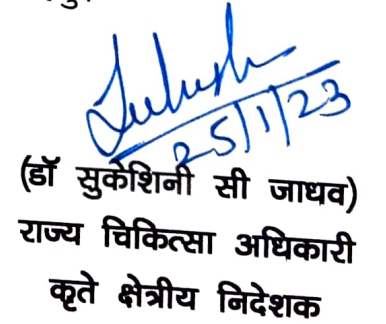 25/1/23
(डॉ सुकेशिनी सी जाधव)
राज्य चिकित्सा अधिकारी
कृते क्षेत्रीय निदेशक